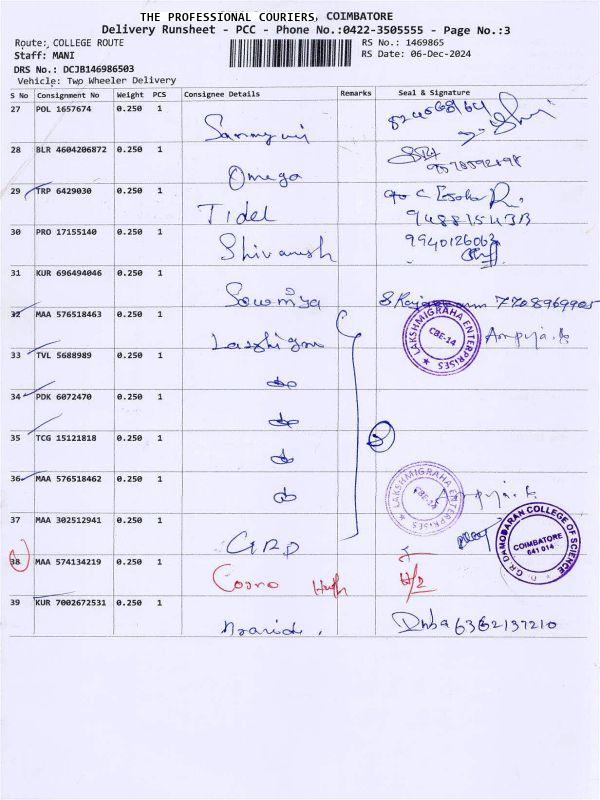 THE PROFESSIONAL COURIERS, COIMBATORE
Delivery Runsheet - PCC - Phone No.:0422-3505555 - Page No.:3
Route: COLLEGE ROUTE
RS No.: 1469865
Staff: MANI
RS Date: 06-Dec-2024
DRS No.: DCJB146986503
Vehicle: Two Wheeler Delivery
S No Consignment No Weight PCS Consignee Details Remarks Seal & Signature
27 POL 1657674 0.250 1
28 BLR 4604206872 0.250 1
Omega
29 TRP 6429030 0.250 1
Tidel
30 PRO 17155140 0.250 1 9940126063
Shivansh
31 KUR 696494046 0.250 1
Sowmiya 7708969905
32 MAA 576518463 0.250 1
LAKSHMIGRAHA ENTERPRISES CBE-14
33 TVL 5688989 0.250 1
34 PDK 6072470 0.250 1
35 TCG 15121818 0.250 1
36 MAA 576518462 0.250 1
LAKSHMIGRAHA ENTERPRISES CBE-14
37 MAA 302512941 0.250 1
GRD
DR. G.R DAMODARAN COLLEGE OF SCIENCE COIMBATORE 641 014
38 MAA 574134219 0.250 1
39 KUR 7002672531 0.250 1
6362137210